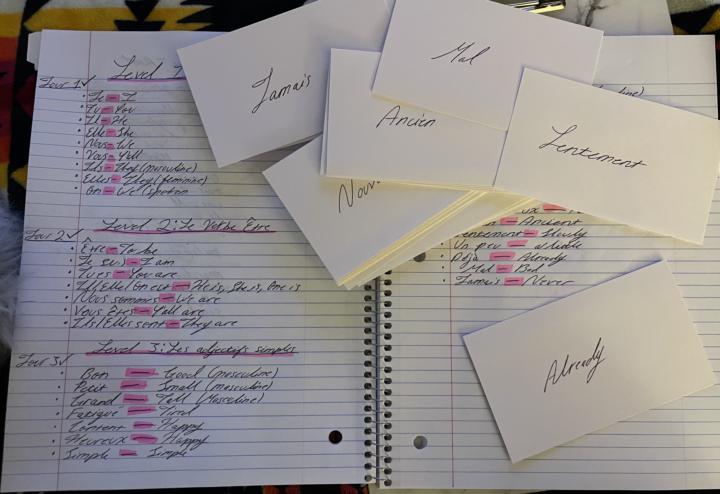 Level 1
Jour 1✓
• Je — I
• Tu — You
• Il — He
• Elle — She
• Nous — We
• Vous — Y'all
• Ils — They (masculine)
• Elles — They (feminine)
• On — We (spoken
Level 2: Le Verbe Être
Jour 2✓
• Être — To be
• Je suis — I am
• Tu es — You are
• Il/Elle/On est — He is, She is, One is
• Nous sommes — We are
• Vous Êtes — Y'all are
• Ils/Elles sont — They are
Level 3: Les adjectifs simples
Jour 3✓
• Bon — Good (masculine)
• Petit — Small (masculine)
• Grand — Tall (Masculine)
• Fatigue — Tired
• Content — Happy
• Heureux — Happy
• Simple — Simple
Jamais
Mal
Ancien
Lentement
Nouv
— Ancient
Lentement — Slowly
Un peu — a little
• Déjà — Already
• Mal — Bad
• Jamais — Never
Already